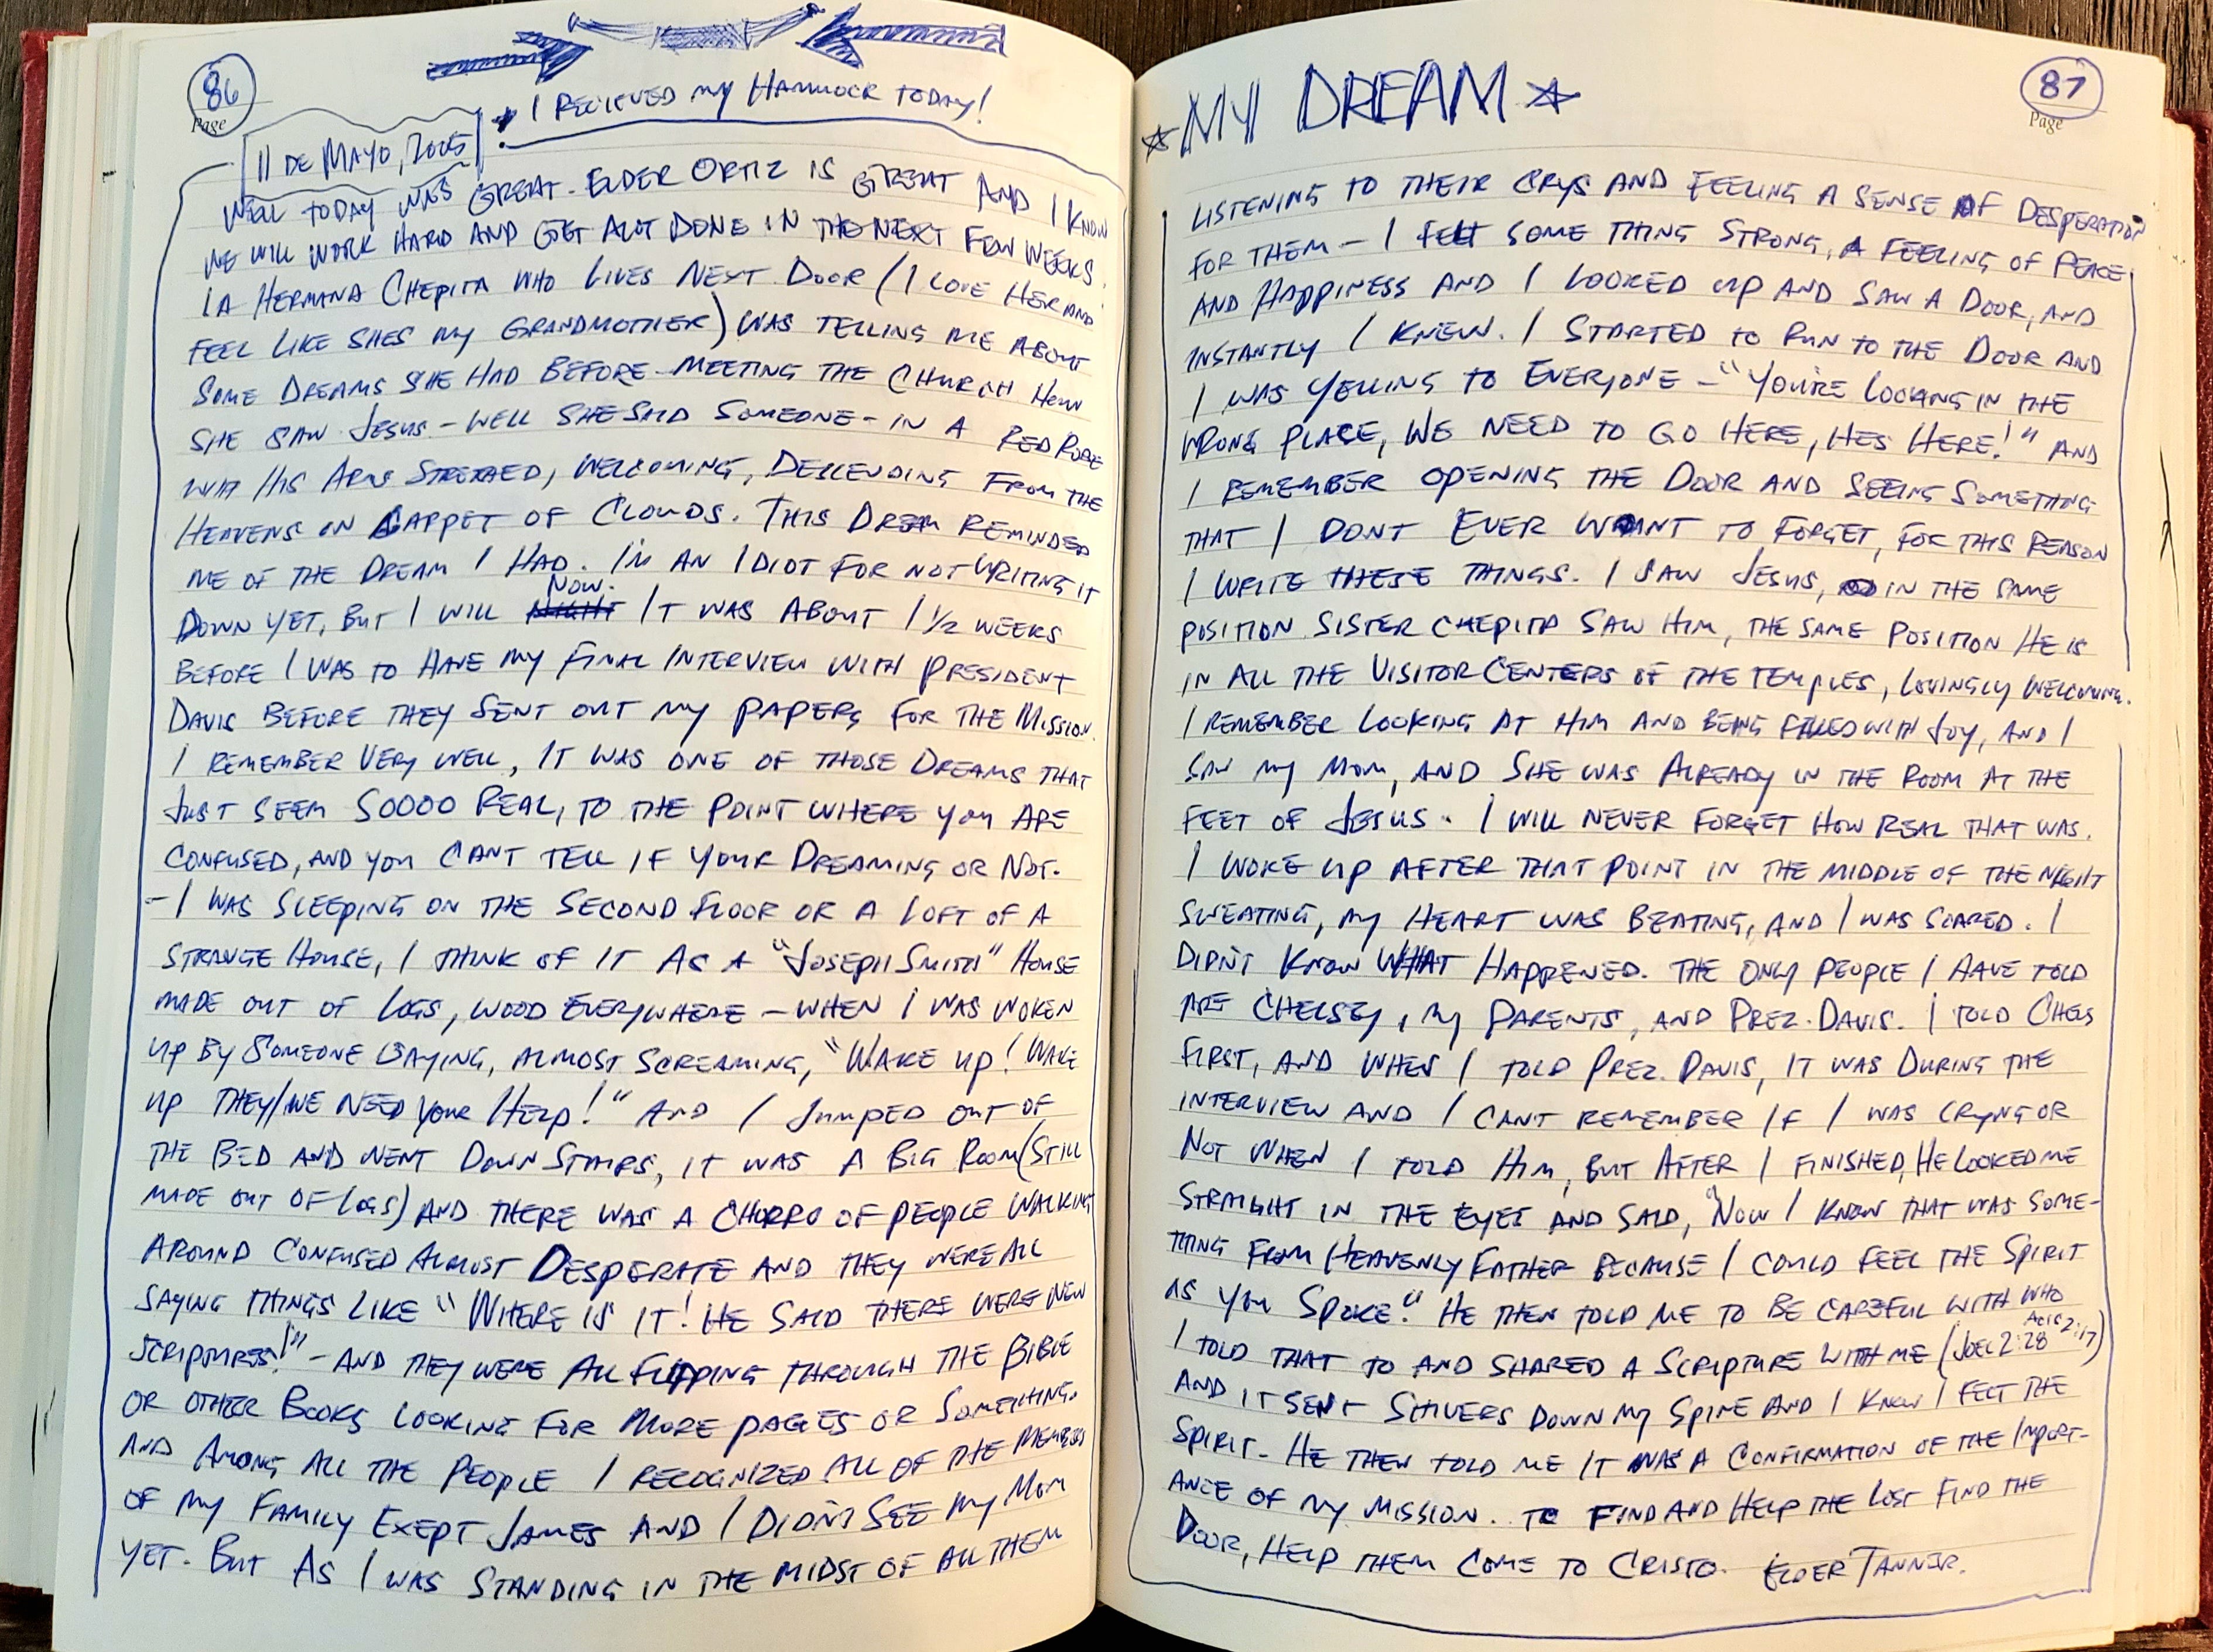 86
Page
I RECIEVED MY HAMMOCK TODAY!
11 DE MAYO, 2005
WELL TODAY WAS GREAT. ELDER ORTIZ IS GREAT AND I KNOW
WE WILL WORK HARD AND GET ALOT DONE IN THE NEXT FEW WEEKS.
LA HERMANA CHEPITA WHO LIVES NEXT DOOR (I LOVE HER AND
FEEL LIKE SHES MY GRANDMOTHER) WAS TELLING ME ABOUT
SOME DREAMS SHE HAD BEFORE MEETING THE CHURCH HOW
SHE SAW JESUS - WELL SHE SAID SOMEONE - IN A RED ROBE
WITH HIS ARMS STRETCHED, WELCOMING, DESCENDING FROM THE
HEAVENS ON CARPET OF CLOUDS. THIS DREAM REMINDED
ME OF THE DREAM I HAD. I'M AN IDIOT FOR NOT WRITING IT
DOWN YET, BUT I WILL NOW. IT WAS ABOUT 1 1/2 WEEKS
BEFORE I WAS TO HAVE MY FINAL INTERVIEW WITH PRESIDENT
DAVIS BEFORE THEY SENT OUT MY PAPERS FOR THE MISSION.
I REMEMBER VERY WELL, IT WAS ONE OF THOSE DREAMS THAT
JUST SEEM SOOOO REAL, TO THE POINT WHERE YOU ARE
CONFUSED, AND YOU CANT TELL IF YOUR DREAMING OR NOT.
- I WAS SLEEPING ON THE SECOND FLOOR OR A LOFT OF A
STRANGE HOUSE, I THINK OF IT AS A "JOSEPH SMITH" HOUSE
MADE OUT OF LOGS, WOOD EVERYWHERE - WHEN I WAS WOKEN
UP BY SOMEONE SAYING, ALMOST SCREAMING, "WAKE UP! WAKE
UP THEY/WE NEED YOUR HELP!" AND I JUMPED OUT OF
THE BED AND WENT DOWN STAIRS, IT WAS A BIG ROOM (STILL
MADE OUT OF LOGS) AND THERE WAS A CHORRO OF PEOPLE WALKING
AROUND CONFUSED ALMOST DESPERATE AND THEY WERE ALL
SAYING THINGS LIKE "WHERE IS IT! HE SAID THERE WERE NEW
SCRIPTURES!" - AND THEY WERE ALL FLIPPING THROUGH THE BIBLE
OR OTHER BOOKS LOOKING FOR MORE PAGES OR SOMETHING.
AND AMONG ALL THE PEOPLE I RECOGNIZED ALL OF THE MEMBERS
OF MY FAMILY EXEPT JAMES AND I DIDN'T SEE MY MOM
YET. BUT AS I WAS STANDING IN THE MIDST OF ALL THEM
MY DREAM
87
Page
LISTENING TO THEIR CRYS AND FEELING A SENSE OF DESPERATION
FOR THEM - I FELT SOME THING STRONG, A FEELING OF PEACE
AND HAPPINESS AND I LOOKED UP AND SAW A DOOR, AND
INSTANTLY I KNEW. I STARTED TO RUN TO THE DOOR AND
I WAS YELLING TO EVERYONE - "YOU'RE LOOKING IN THE
WRONG PLACE, WE NEED TO GO HERE, HES HERE!" AND
I REMEMBER OPENING THE DOOR AND SEEING SOMETHING
THAT I DONT EVER WANT TO FORGET, FOR THIS REASON
I WRITE THESE THINGS. I SAW JESUS, IN THE SAME
POSITION SISTER CHEPITA SAW HIM, THE SAME POSITION HE IS
IN ALL THE VISITOR CENTERS OF THE TEMPLES, LOVINGLY WELCOMING.
I REMEMBER LOOKING AT HIM AND BEING FILLED WITH JOY, AND I
SAW MY MOM, AND SHE WAS ALREADY IN THE ROOM AT THE
FEET OF JESUS. I WILL NEVER FORGET HOW REAL THAT WAS.
I WOKE UP AFTER THAT POINT IN THE MIDDLE OF THE NIGHT
SWEATING, MY HEART WAS BEATING, AND I WAS SCARED. I
DIDN'T KNOW WHAT HAPPENED. THE ONLY PEOPLE I HAVE TOLD
ARE CHELSEY, MY PARENTS, AND PREZ. DAVIS. I TOLD CHELS
FIRST, AND WHEN I TOLD PREZ. DAVIS, IT WAS DURING THE
INTERVIEW AND I CANT REMEMBER IF I WAS CRYNG OR
NOT WHEN I TOLD HIM, BUT AFTER I FINISHED, HE LOOKED ME
STRAIGHT IN THE EYES AND SAID, "NOW I KNOW THAT WAS SOME-
THING FROM HEAVENLY FATHER BECAUSE I COULD FEEL THE SPIRIT
AS YOU SPOKE." HE THEN TOLD ME TO BE CAREFUL WITH WHO
I TOLD THAT TO AND SHARED A SCRIPTURE WITH ME (JOEL 2:28 ACTS 2:17)
AND IT SENT SHIVERS DOWN MY SPINE AND I KNOW I FELT THE
SPIRIT. HE THEN TOLD ME IT WAS A CONFIRMATION OF THE IMPORT-
ANCE OF MY MISSION. TO FIND AND HELP THE LOST FIND THE
DOOR, HELP THEM COME TO CRISTO. ELDER TANNER.